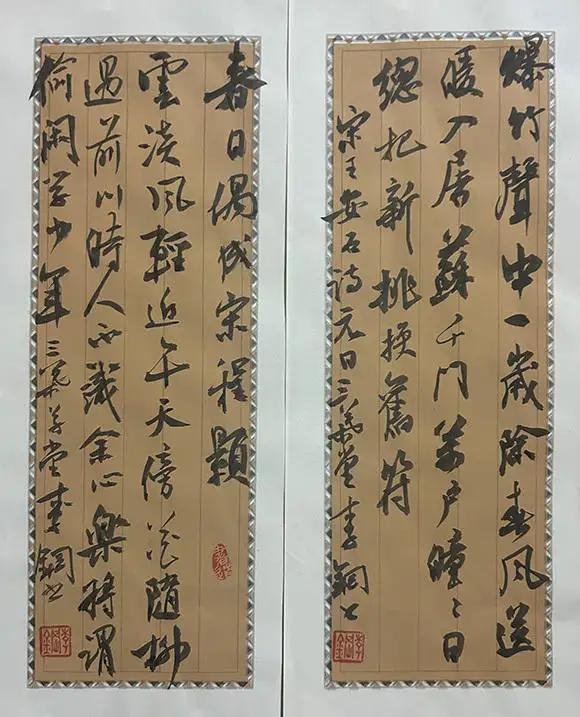 爆竹聲中一歲除春風送
暖入屠蘇千門萬戶曈〻日
總把新桃換舊符
宋王安石詩元日三葉堂李鋼書
春日偶成宋程顥
雲淡風輕近午天傍花隨柳
過前川時人不識余心樂將謂
偷閑學少年三葉草堂李鋼書